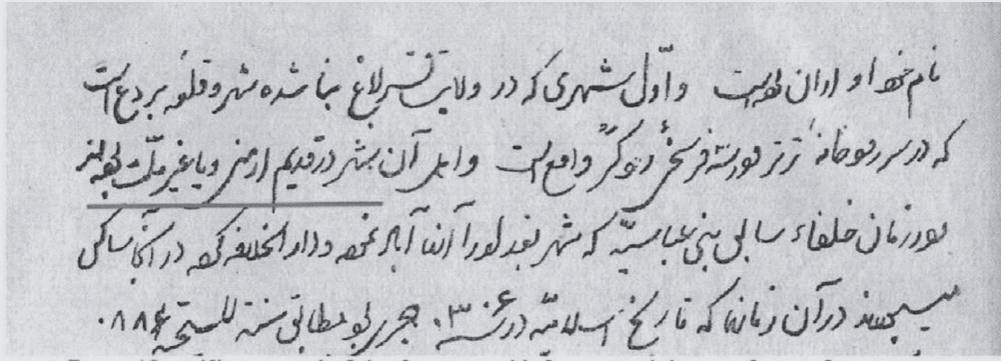 نام خود او اران بوده است و اول شهری که در ولایت قراباغ بنا شده شهر و قلعه بردع است
که در سر رودخانه ترتر در سه فرسخی رود کر واقع است و اهل آن شهر در قدیم ارمنی و یا غیر ملت بوده‌اند
در زمان خلفاء سابق بنی عباسیه که شهر بغداد را آباد نموده و دارالخلافه کرده در آنجا ساکن
میشدند در آن زمان که تاریخ اسلامیّه در سنه ۳۰۶ هجری بود مطابق سنه المسیحیه ۰۸۸۶